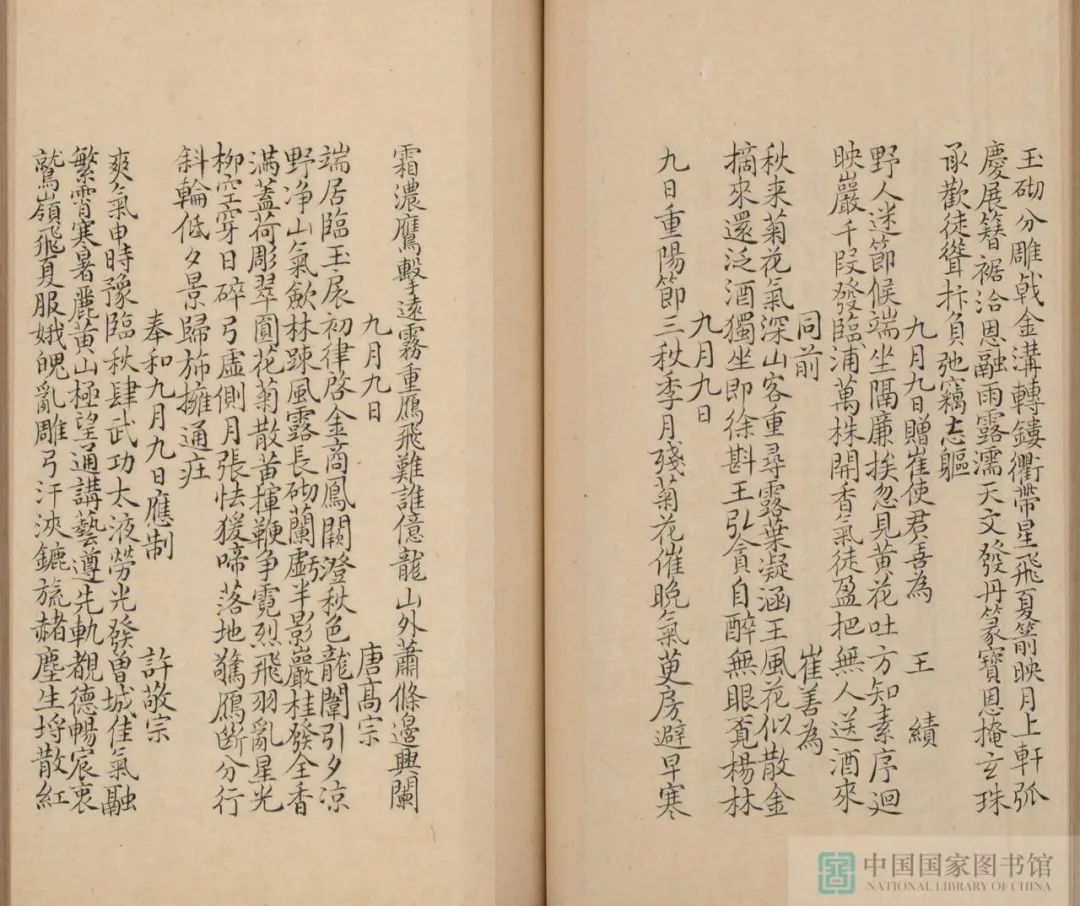 玉砌分雕戟金溝轉鏤衢帶星飛夏箭映月上軒弧
慶展簪裾洽恩融雨露濡天文發丹篆寶思掩玄珠
承歡徒聳抃負弛竊忘軀
九月九日贈崔使君善為 王 績
野人迷節候端坐隔廉挨忽見黄花吐方知素序迴
映巖千段發臨浦萬株開香氣徒盈把無人送酒來
同前 崔善為
秋来菊花氣深山客重尋露葉凝涵玉風花似散金
摘來還泛酒獨坐即徐斟王弘貪自醉無眼覔楊林
九月九日
九日重陽節三秋季月殘菊花催晚氣萸房避早寒
霜濃鷹擊遠霧重鴈飛難誰億龍山外蕭條邊興闌
九月九日 唐高宗
端居臨玉扆初律啓金商鳳闕澄秋色龍闈引夕凉
野净山氣歛林踈風露長砌蘭虧半影巖桂發全香
滿蓋荷彫翠圓花菊散黄揮鞭争電烈飛羽亂星光
柳空穿日碎弓虚側月張怯猨啼落地驚鴈断分行
斜輪低夕景歸斾擁通疘
奉和九月九日應制 許敬宗
爽氣申時豫臨秋肆武功太液勞光發曽城佳氣融
繁霄寒暑麗黄山極望通講藝遵先軌覩德暢宸衷
鷲嶺飛夏服娥魄亂雕弓汗浹鑣旒赭塵生埒散紅
中国国家图书馆
NATIONAL LIBRARY OF CHINA